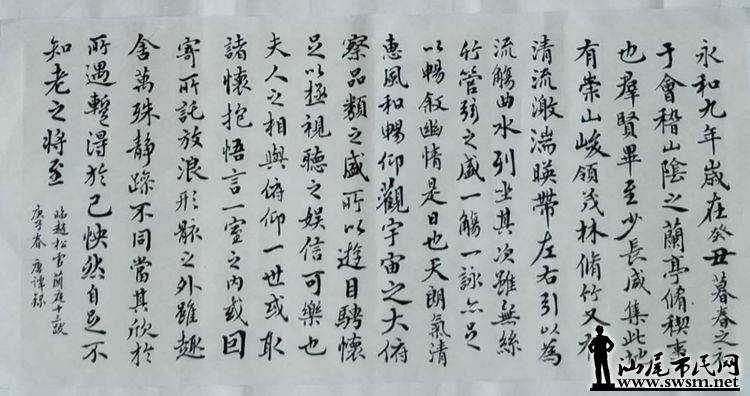 永和九年歲在癸丑暮春之初
于會稽山陰之蘭亭脩稧事
也羣賢畢至少長咸集此地
有崇山峻領茂林脩竹又有
清流激湍暎帶左右引以為
流觴曲水列坐其次雖無絲
竹管弦之盛一觴一詠亦足
以暢敘幽情是日也天朗氣清
惠風和暢仰觀宇宙之大俯
察品類之盛所以遊目騁懷
足以極視聽之娛信可樂也
夫人之相與俯仰一世或取
諸懷抱悟言一室之内或因
寄所託放浪形骸之外雖趣
舍萬殊静躁不同當其欣於
所遇蹔得於己怏然自足不
知老之将至
臨趙松雪蘭亭十三跋
庚子春
汕尾市民网
www.swsm.net